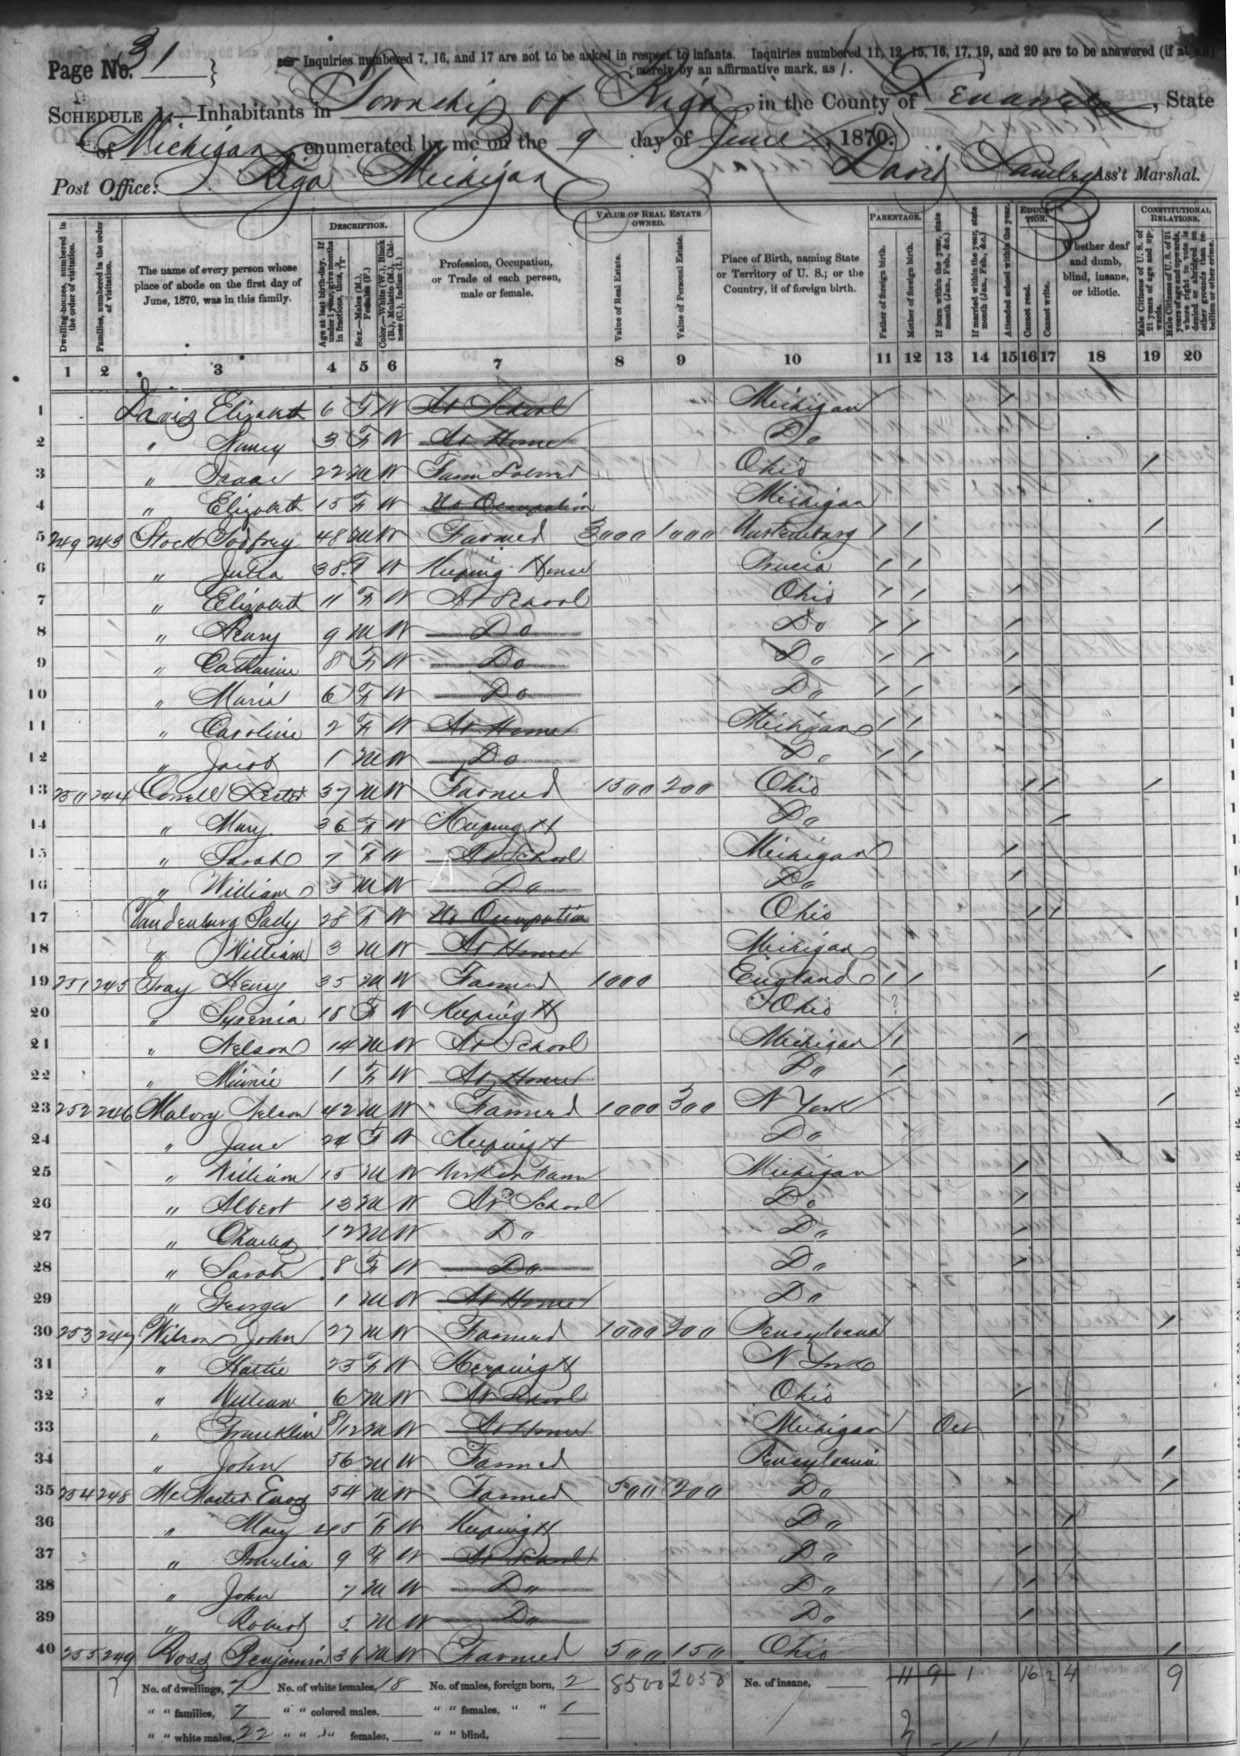 Page No. 31
Inquiries numbered 7, 16, and 17 are not to be asked in respect to infants. Inquiries numbered 11, 12, 15, 16, 17, 19, and 20 are to be answered (if at all) merely by an affirmative mark, as /.
SCHEDULE 1.—Inhabitants in Township of Riga, in the County of Lenawee, State
of Michigan, enumerated by me on the 9 day of June, 1870.
Post Office: Riga Michigan David Ass't Marshal.
DESCRIPTION. VALUE OF REAL ESTATE OWNED. PARENTAGE. EDUCATION. CONSTITUTIONAL RELATIONS.
Dwelling-houses, numbered in the order of visitation.
Families, numbered in the order of visitation.
The name of every person whose place of abode on the first day of June, 1870, was in this family.
Age at last birth-day. If under 1 year, give months in fractions, thus, 3/12.
Sex.—Males (M.), Females (F.)
Color.—White (W.), Black (B.), Mulatto (M.), Chinese (C.), Indian (I.)
Profession, Occupation, or Trade of each person, male or female.
Value of Real Estate.
Value of Personal Estate.
Place of Birth, naming State or Territory of U. S.; or the Country, if of foreign birth.
Father of foreign birth.
Mother of foreign birth.
If born within the year, state month (Jan., Feb., &c.)
If married within the year, state month (Jan., Feb., &c.)
Attended school within the year.
Cannot read.
Cannot write.
Whether deaf and dumb, blind, insane, or idiotic.
Male Citizens of U. S. of 21 years of age and upwards.
Male Citizens of U. S. of 21 years of age and upwards, where right to vote is denied or abridged on other grounds than rebellion or other crime.
1 2 3 4 5 6 7 8 9 10 11 12 13 14 15 16 17 18 19 20
1 Davis Elizabeth 6 F W At School Michigan /
2 " Nancy 3 F W At Home Do
3 " Isaac 22 M W Farm Ohio /
4 " Elizabeth 15 F W No Occupation Michigan
5 249 243 Stock Godfrey 48 M W Farmer 3000 1000 Wurtemburg / / /
6 " Julia 38 F W Keeping House Prucia / /
7 " Elizabeth 11 F W At School Ohio / / /
8 " Henry 9 M W Do Do / / /
9 " Catharine 8 F W Do Do / / /
10 " Maria 6 F W Do Do / / /
11 " Caroline 2 F W At Home Michigan / /
12 " Jacob 1 M W Do Do / /
13 250 244 Correll 37 M W Farmer 1500 200 Ohio / / /
14 " Mary 36 F W Keeping H Do /
15 " Sarah 7 F W At School Michigan /
16 " William 5 M W Do Do /
17 Vandenburg 28 F W No Occupation Ohio / /
18 " William 3 M W At Home Michigan
19 251 245 Gray Henry 35 M W Farmer 1000 England / / /
20 " 18 F W Keeping H Ohio ?
21 " Nelson 14 M W At School Michigan / /
22 " Minnie 1 F W At Home Do /
23 252 246 Malory Nelson 42 M W Farmer 1000 300 N York /
24 " Jane F W Keeping H Do
25 " William 15 M W Work on Farm Michigan /
26 " Albert 13 M W At School Do /
27 " Charles 12 M W Do Do /
28 " Sarah 8 F W Do Do /
29 " George 1 M W At Home Do
30 253 247 Wilson John 27 M W Farmer 1000 200 Pensylvania /
31 " Hattie 23 F W Keeping H N York
32 " William 6 M W At School Ohio /
33 " Franklin 8/12 M W At Home Michigan Oct
34 " John 56 M W Farmer Pensylvania /
35 254 248 McMaster Enos 54 M W Farmer 500 200 Do /
36 " Mary 45 F W Keeping H Do /
37 " 9 F W At School Do /
38 " John 7 M W Do Do /
39 " Robert 5 M W Do Do /
40 255 249 Ross Benjamin 36 M W Farmer 500 150 Ohio /
No. of dwellings, 7 No. of white females, 18 No. of males, foreign born, 2 8500 2050 No. of insane, 11 9 1 16 2 4 9
" " families, 7 " " colored males, " " females, " " 1
" " white males, 22 " " " females, " " blind,